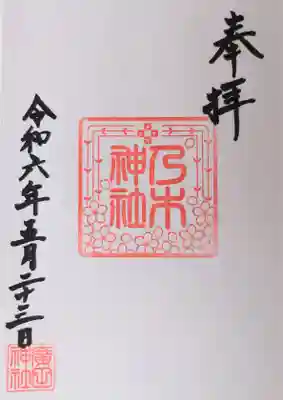 奉拝
乃木
神社
令和六年五月二十三日
廣山
神社